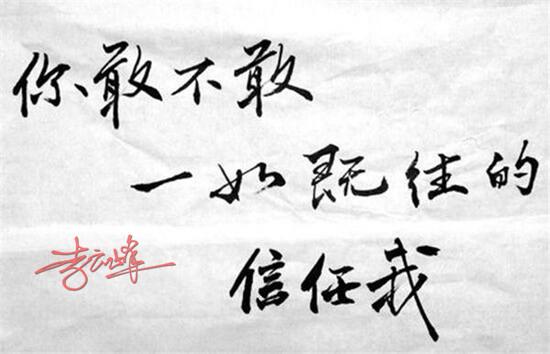 你敢不敢
一如既往的
李云峰
信任我